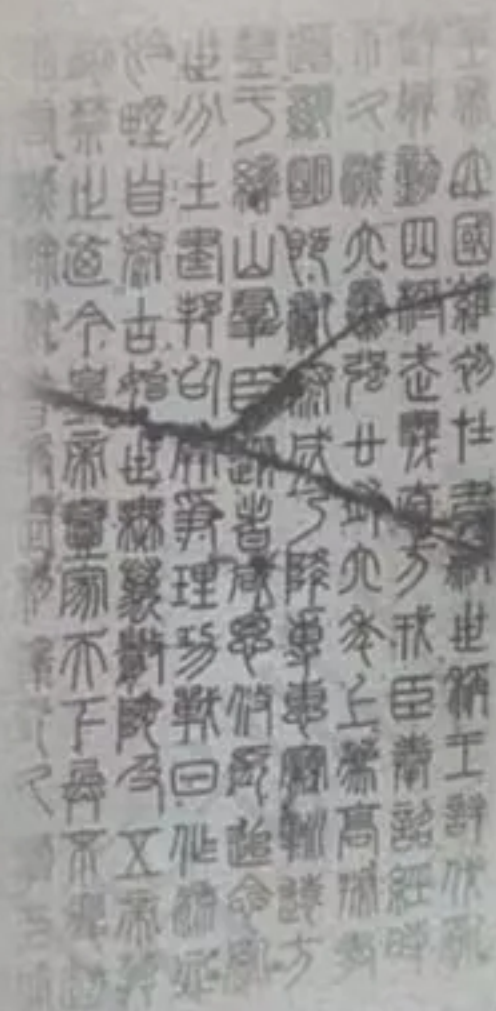 皇帝立國維初在昔嗣世稱王討伐亂
逆威動四極武義直方戎臣奉詔經時
不久滅六暴強廿有六年上薦高號孝
道顯明既獻泰成乃降專惠寴車巛遠方
登于繹山群臣從者咸思攸長追念亂
世分土建邦以開爭理功戰日作流血
於野自泰古始世無萬數陀及五帝莫
能禁止廼今皇帝壹家天下兵不復起
災害滅除黔首康定利澤長久群臣誦